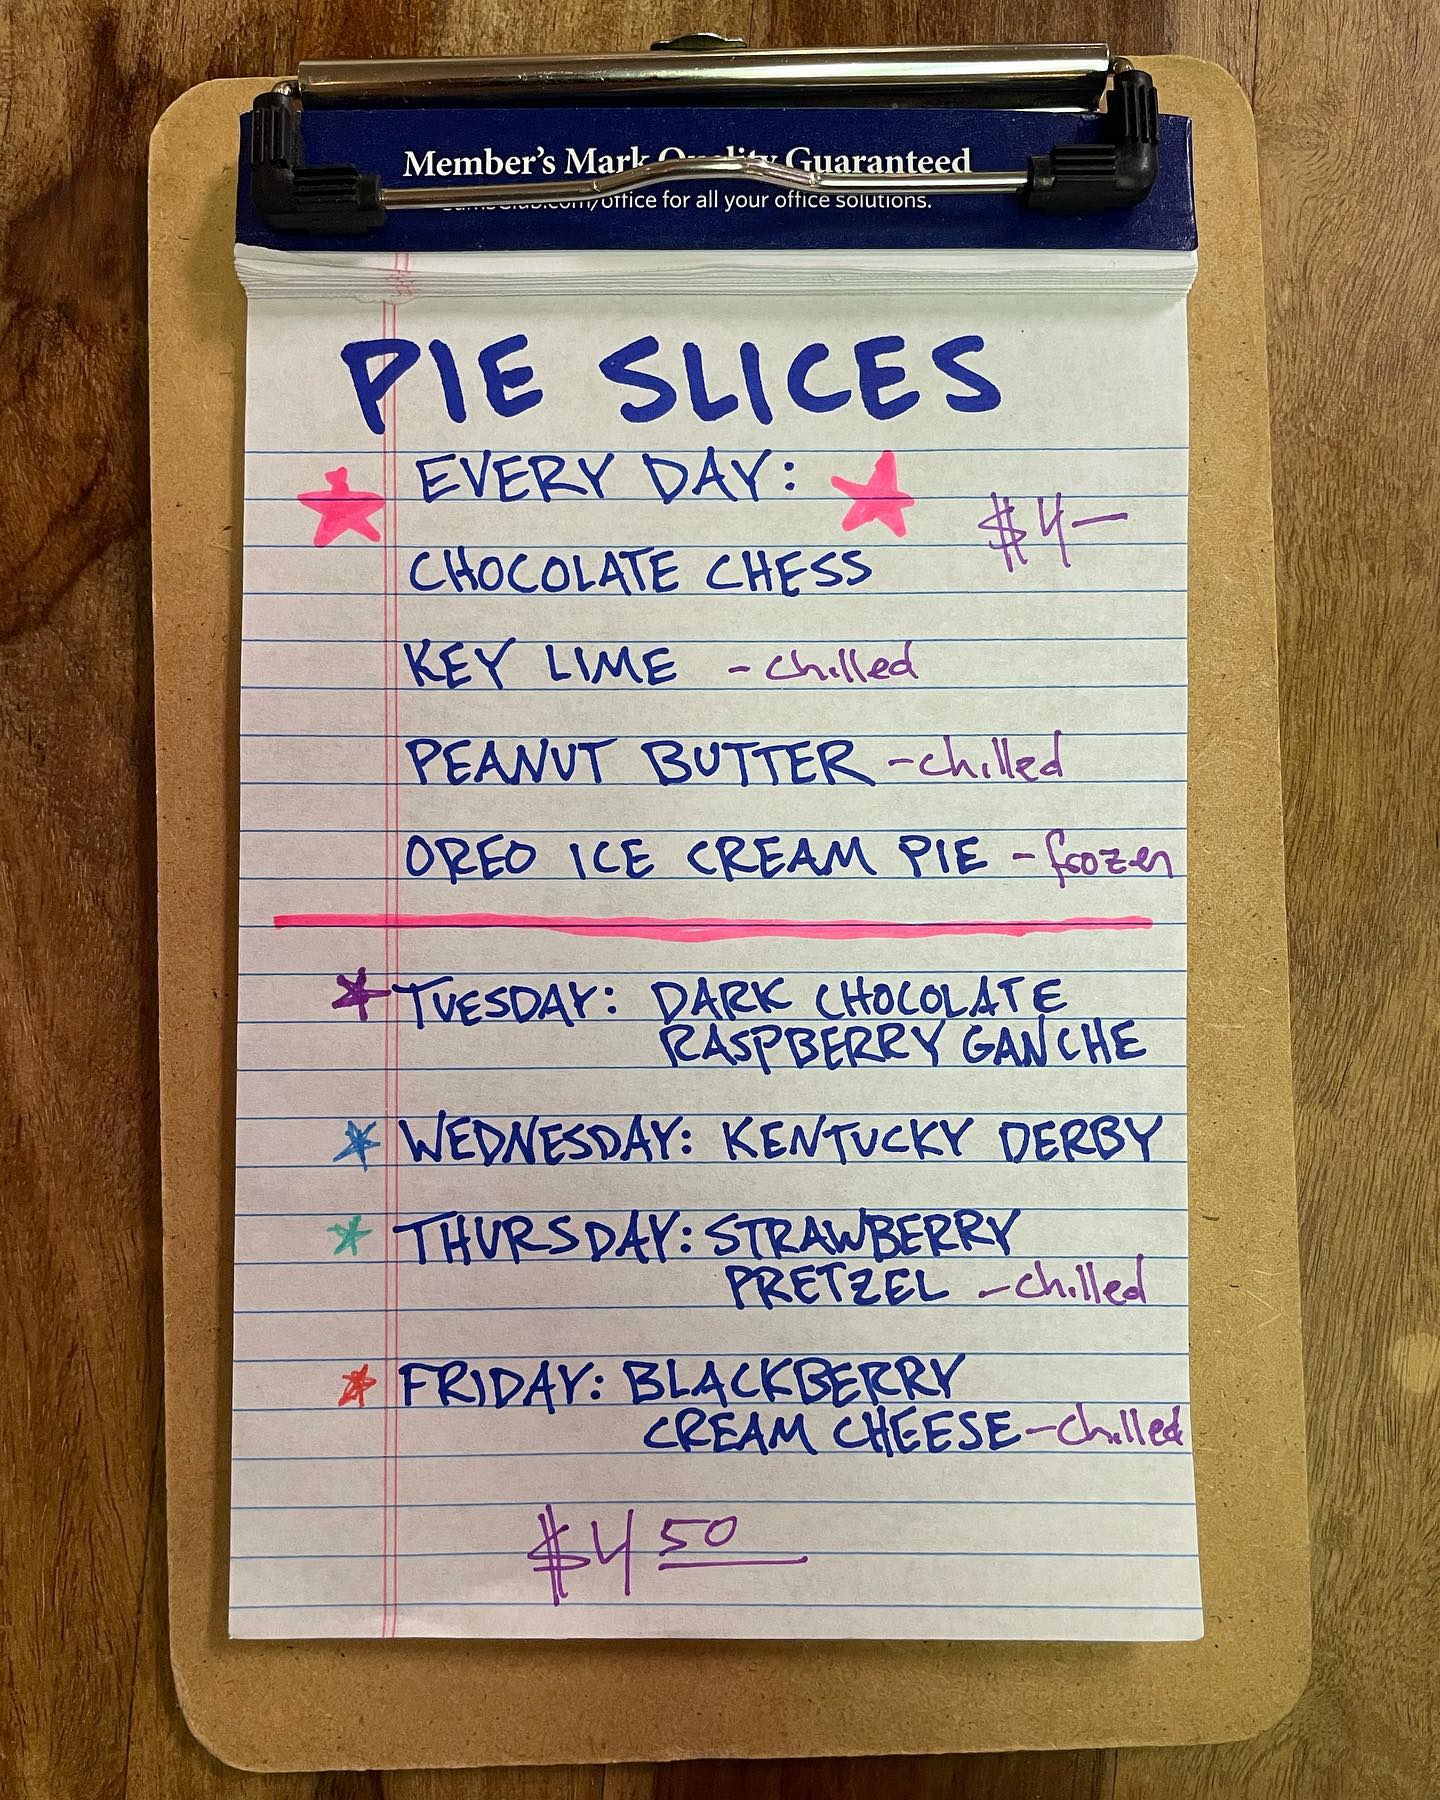 Member's Mark Quality Guaranteed
for all your office solutions.
PIE SLICES
EVERY DAY:
$4—
CHOCOLATE CHESS
KEY LIME - chilled
PEANUT BUTTER - chilled
OREO ICE CREAM PIE - frozen
TUESDAY: DARK CHOCOLATE
RASPBERRY GANCHE
WEDNESDAY: KENTUCKY DERBY
THURSDAY: STRAWBERRY
PRETZEL - chilled
FRIDAY: BLACKBERRY
CREAM CHEESE - chilled
$4 50